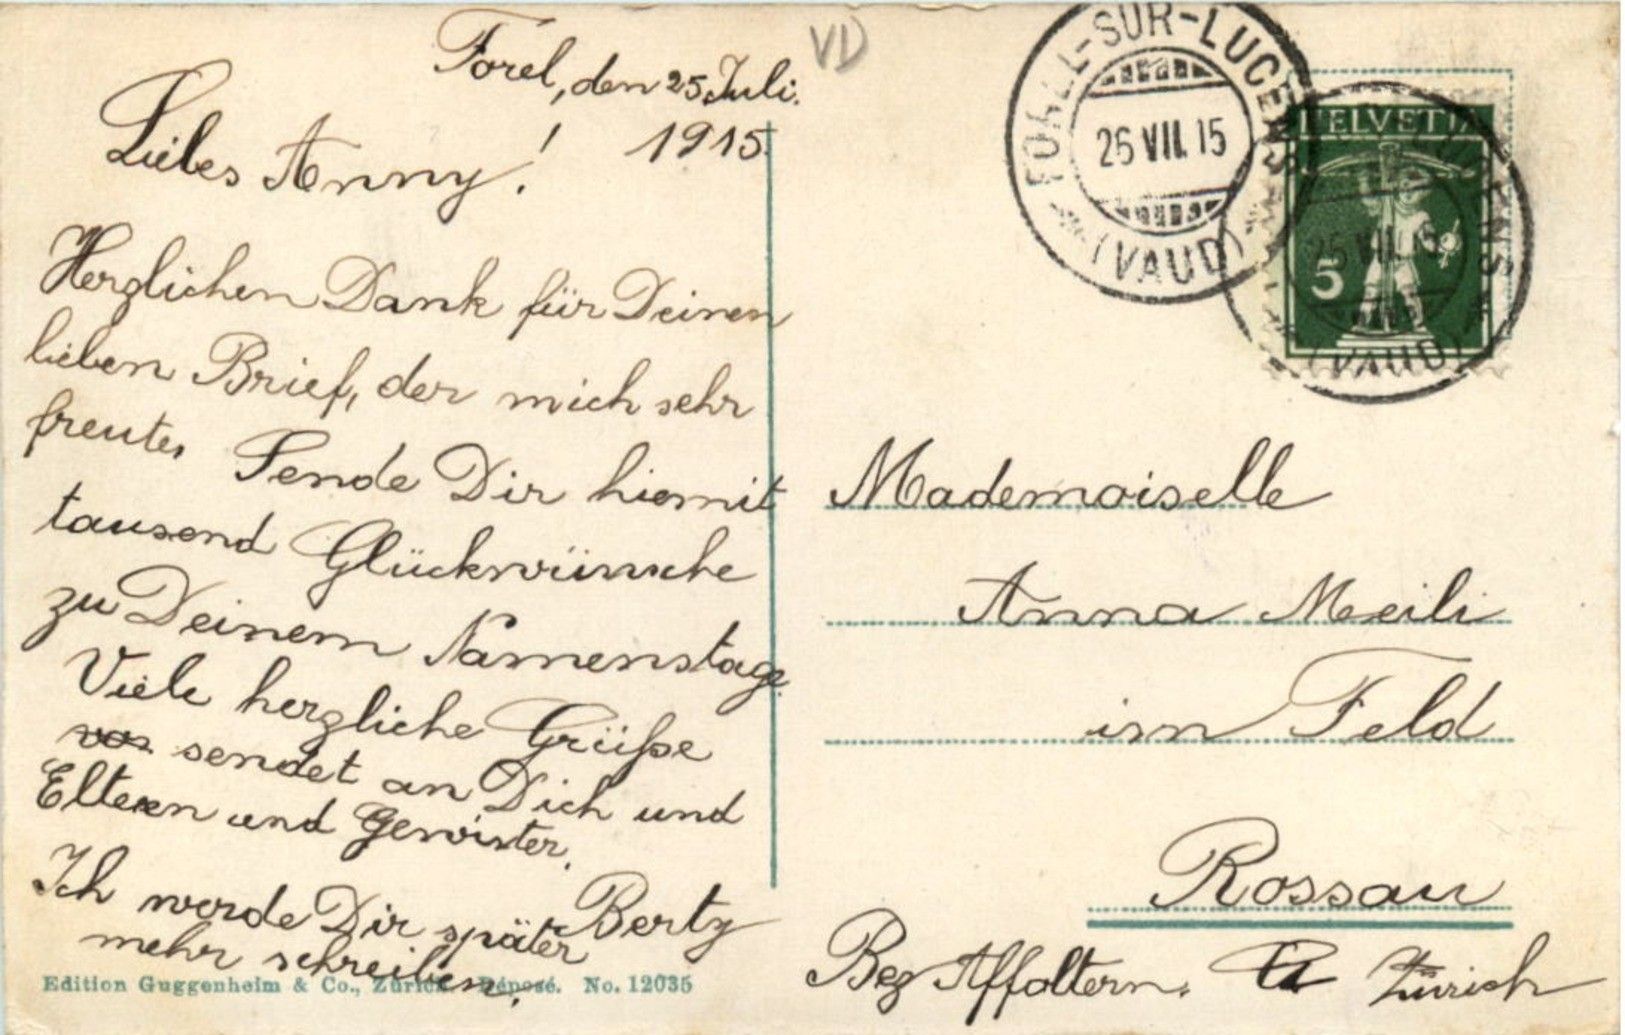 Forel, den 25. Juli.
1915.
Liebes Anny!
Herzlichen Dank für Deinen
lieben Brief, der mich sehr
freute. Sende Dir hiemit
tausend Glückwünsche
zu Deinem Namenstage.
Viele herzliche Grüße
sendet an Dich und
Eltern und Gewister.
Berty
Ich werde Dir später
mehr schreiben.
Edition Guggenheim & Co., Zürich. Déposé. No. 12035
VD
FOREL-SUR-LUCENS
26 VII. 15
(VAUD)
HELVETIA
5
26 VII. 15
(VAUD)
Mademoiselle
Anna Meili
im Feld
Rossau
Bez Affoltern. Zürich